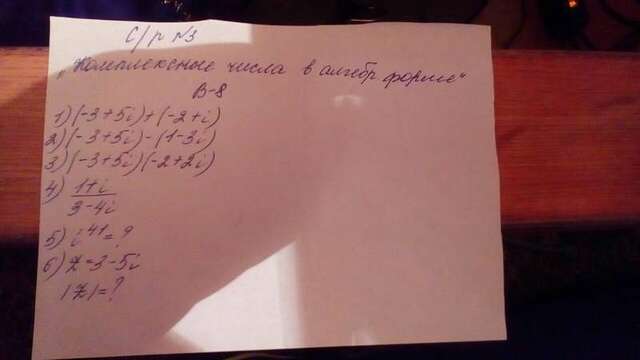 С/р №3
"Комплексные числа в алгебр. форме"
В-8
1) (-3+5i)+(-2+i)
2) (-3+5i)-(1-3i)
3) (-3+5i)(-2+2i)
4) 1+i
3-4i
5) i^41=?
6) z=3-5i
|z|=?